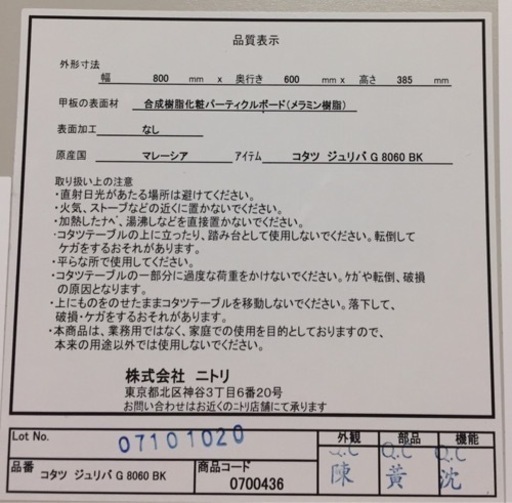 品質表示
外形寸法
幅 800 mm x 奥行き 600 mm x 高さ 385 mm
甲板の表面材 合成樹脂化粧パーティクルボード(メラミン樹脂)
表面加工 なし
原産国 マレーシア アイテム コタツ ジュリバ G 8060 BK
取り扱い上の注意
・直射日光があたる場所は避けてください。
・火気、ストーブなどの近くに置かないでください。
・加熱したナベ、湯沸しなどを直接置かないでください。
・コタツテーブルの上に立ったり、踏み台として使用しないでください。転倒して
ケガをするおそれがあります。
・平らな所で使用してください。
・コタツテーブルの一部分に過度な荷重をかけないでください。ケガや転倒、破損
の原因となります。
・上にものをのせたままコタツテーブルを移動しないでください。落下して、
破損・ケガをするおそれがあります。
・本商品は、業務用ではなく、家庭での使用を目的としておりますので、
本来の用途以外では使用しないでください。
株式会社 ニトリ
東京都北区神谷3丁目6番20号
お問い合わせはお近くのニトリ店舗にて承ります
Lot No. 07101020 外観 部品 機能
Q.C Q.C Q.C
陳 黃 沈
品番 コタツ ジュリバ G 8060 BK 商品コード 0700436